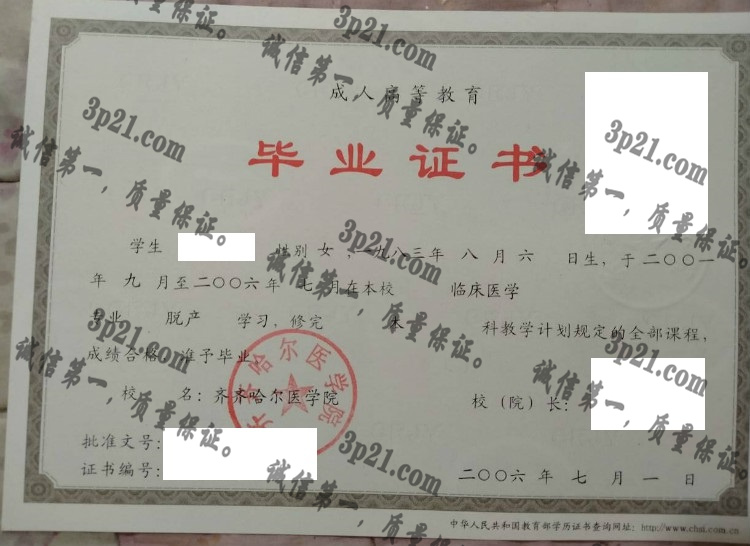 成人高等教育
毕业证书
学生 性别 女 ,一九八三年 八 月 六 日生, 于二〇〇一
年 九 月至二〇〇六年 七 月在本校 临床医学
专业 脱产 学习, 修完 本 科教学计划规定的全部课程,
成绩合格, 准予毕业
校 名: 齐齐哈尔医学院 校(院)长:
批准文号:
证书编号: 二〇〇六 年 七 月 一 日
中华人民共和国教育部学历证书查询网址: http://www.chsi.com.cn
齐齐哈尔医学院
3p21.com
诚信第一, 质量保证。
3p21.com
诚信第一, 质量保证。
3p21.com
诚信第一, 质量保证。
3p21.com
诚信第一, 质量保证。
3p21.com
诚信第一, 质量保证。
3p21.com
诚信第一, 质量保证。
3p21.com
诚信第一, 质量保证。
3p21.com
诚信第一, 质量保证。